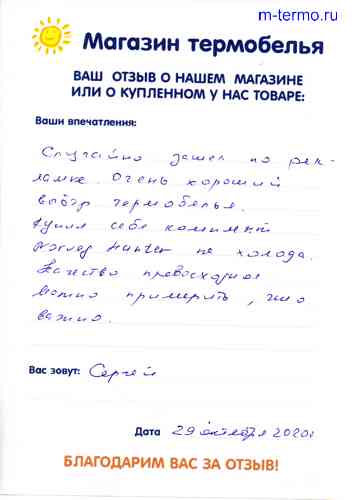 m-termo.ru
Магазин термобелья
ВАШ ОТЗЫВ О НАШЕМ МАГАЗИНЕ
ИЛИ О КУПЛЕННОМ У НАС ТОВАРЕ:
Ваши впечатления:
Случайно зашел по рек-
ламке. Очень хороший
выбор термобелья.
Купил себе комплект
Norveg Hunter не холода.
Качество превосходное
Можно примерить, что
важно.
Вас зовут: Сергей
Дата 29 октября 2020г
БЛАГОДАРИМ ВАС ЗА ОТЗЫВ!